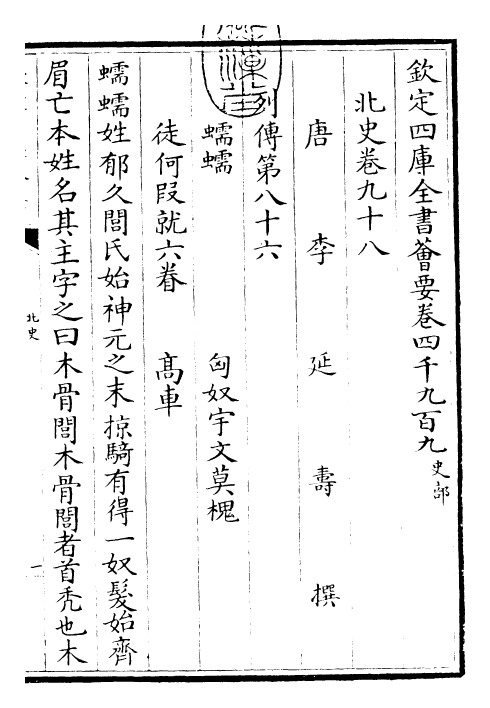 欽定四庫全書薈要卷四千九百九 史部
北史卷九十八
唐 李 延 壽 撰
列傳第八十六
蠕蠕 匈奴宇文莫槐
徒何叚就六眷 髙車
蠕蠕姓郁久閭氏始神元之末掠騎有得一奴髮始齊
眉亡本姓名其主字之曰木骨閭木骨閭者首秃也木
北史
一